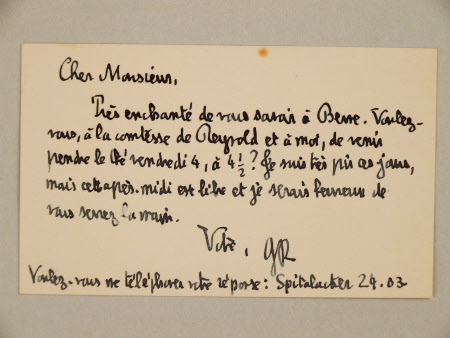 Cher Monsieur,
Très enchanté de vous savoir à Berne. Voulez-
vous, à la comtesse de Reynold et à moi, de venir
prendre le thé vendredi 4, à 4 ½ ? Je suis très pris ces jours,
mais cet après-midi est libre et je serais heureux de
vous serrez la main.
Votre, GR
Voulez-vous me téléphoner votre réponse : Spitalacker 24.03